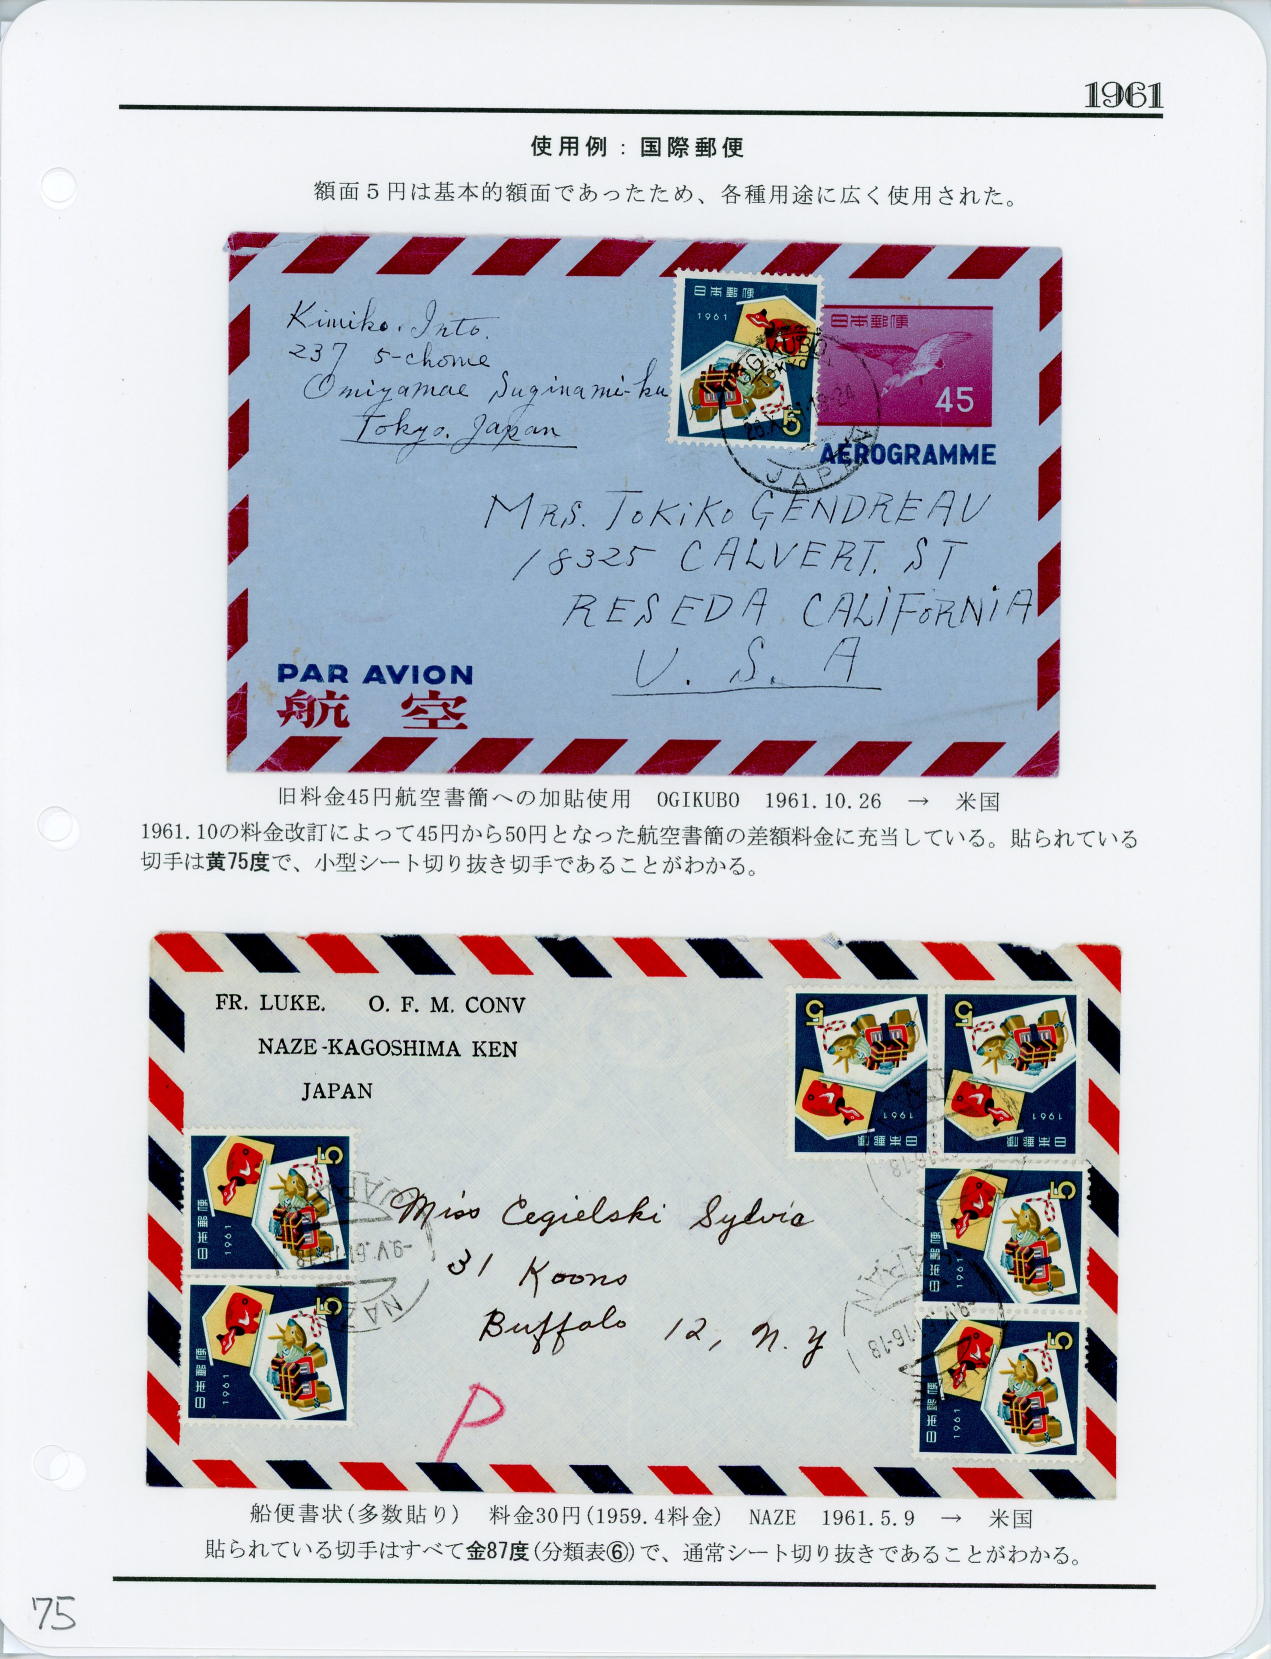 1961
使用例：国際郵便
額面５円は基本的額面であったため、各種用途に広く使用された。
Kimiko. Into.
237 5-chome
Omiyamae Suginami-ku
Tokyo. Japan
日本郵便
1961
5
日本郵便
45
AEROGRAMME
OGIKUBO.
Tokyo
JAPAN
MRS. TOKIKO GENDREAU
18325 CALVERT. ST
RESEDA CALIFORNIA
U. S. A
PAR AVION
航 空
旧料金45円航空書簡への加貼使用　OGIKUBO　1961.10.26　→　米国
1961.10の料金改訂によって45円から50円となった航空書簡の差額料金に充当している。貼られている
切手は黄75度で、小型シート切り抜き切手であることがわかる。
FR. LUKE. O. F. M. CONV
NAZE-KAGOSHIMA KEN
JAPAN
5
1961
日本郵便
5
1961
日本郵便
日本郵便
1961
5
日本郵便
1961
5
日本郵便
1961
5
日本郵便
1961
5
JAPAN
-9.V.61.16-18
NAZE
JAPAN
-9.V.61 16-18
Miss Cegielski Sylvia
31 Koons
Buffalo 12, N. Y
P
船便書状(多数貼り)　料金30円(1959.4料金)　NAZE　1961.5.9　→　米国
貼られている切手はすべて金87度(分類表⑥)で、通常シート切り抜きであることがわかる。
75